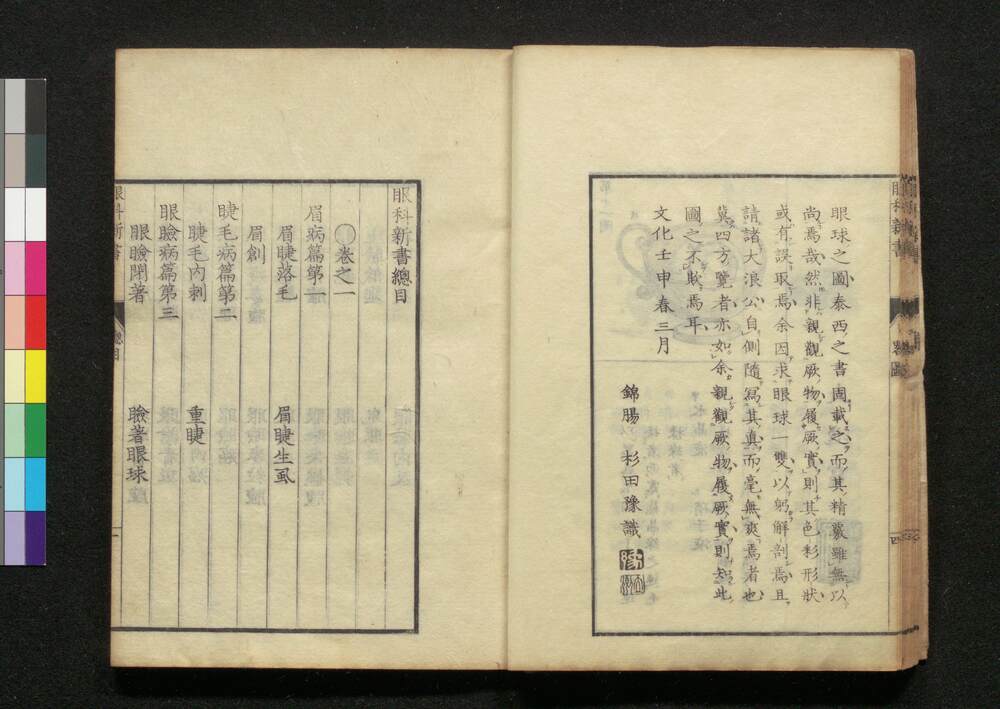 眼球之圖泰西之書固載之而其精嚴雖無以
尚焉哉然非親觀厥物履厥實則其色彩形狀
或有誤取焉余因求眼球一雙以躬解剖焉且
請諸大浪公自側隨寫其眞而毫無爽焉者也
冀四方覽者亦如余親觀厥物履厥實則知此
圖之不欺焉耳
文化壬申春三月
錦腸 杉田豫識
眼科新書
四
眼科新書總目
○卷之一
眉病篇第一
眉睫落毛 眉睫生虱
眉創
睫毛病篇第二
睫毛內刺 重睫
眼瞼病篇第三
眼瞼閉著 瞼著眼球
眼科新書
總目
一